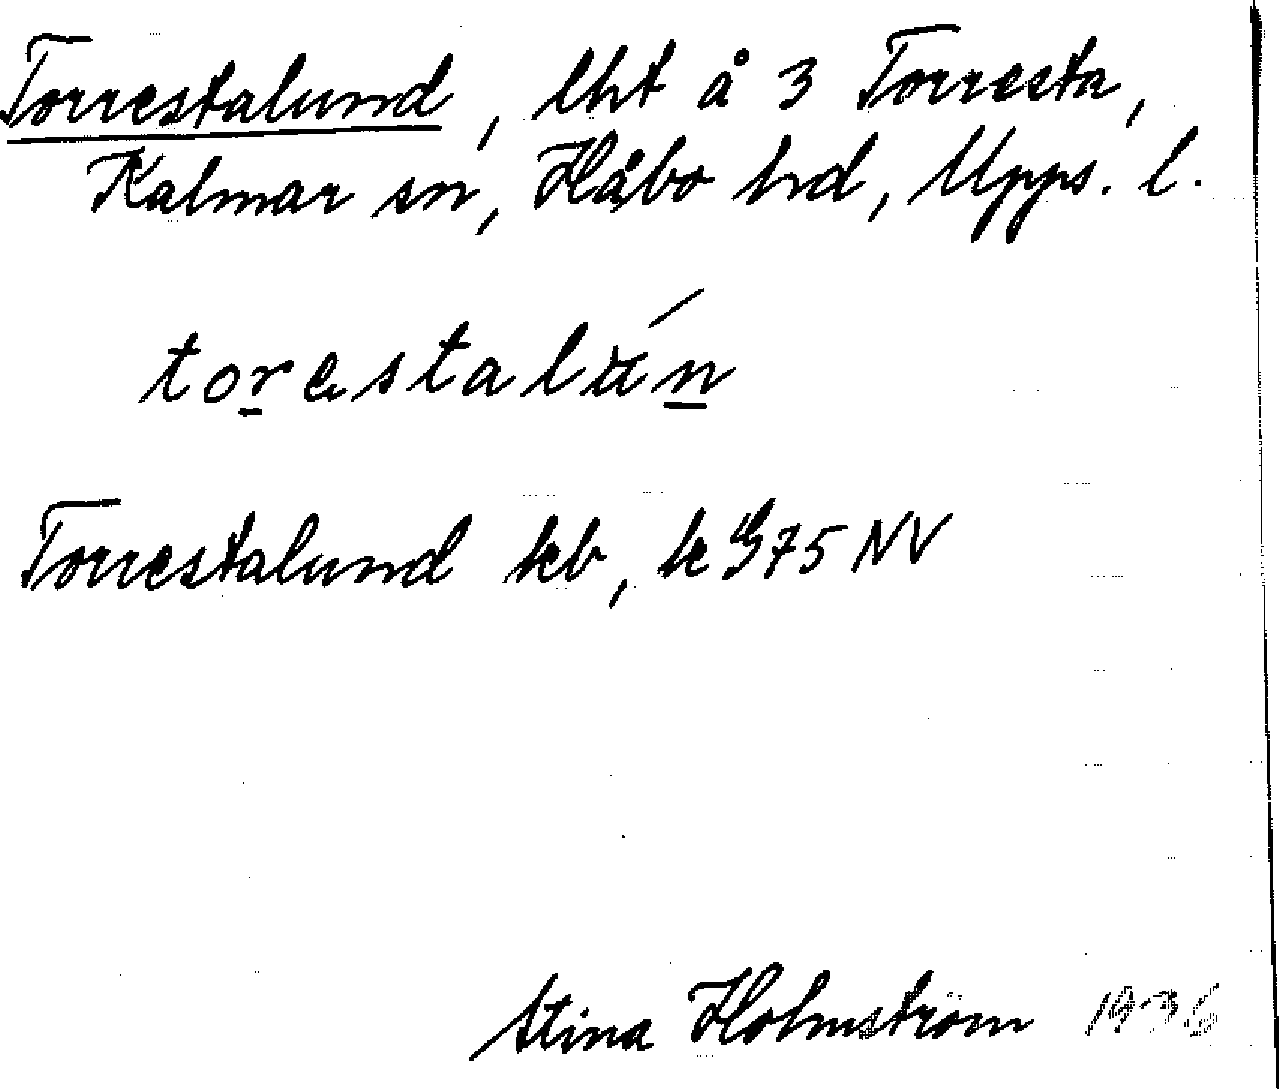 Torrestalund, lht å 3 Torresta,
Kalmar sn, Håbo hrd, Upps. l.
torestalún
Torrestalund kb, k G75 NV
Stina Holmström 1936